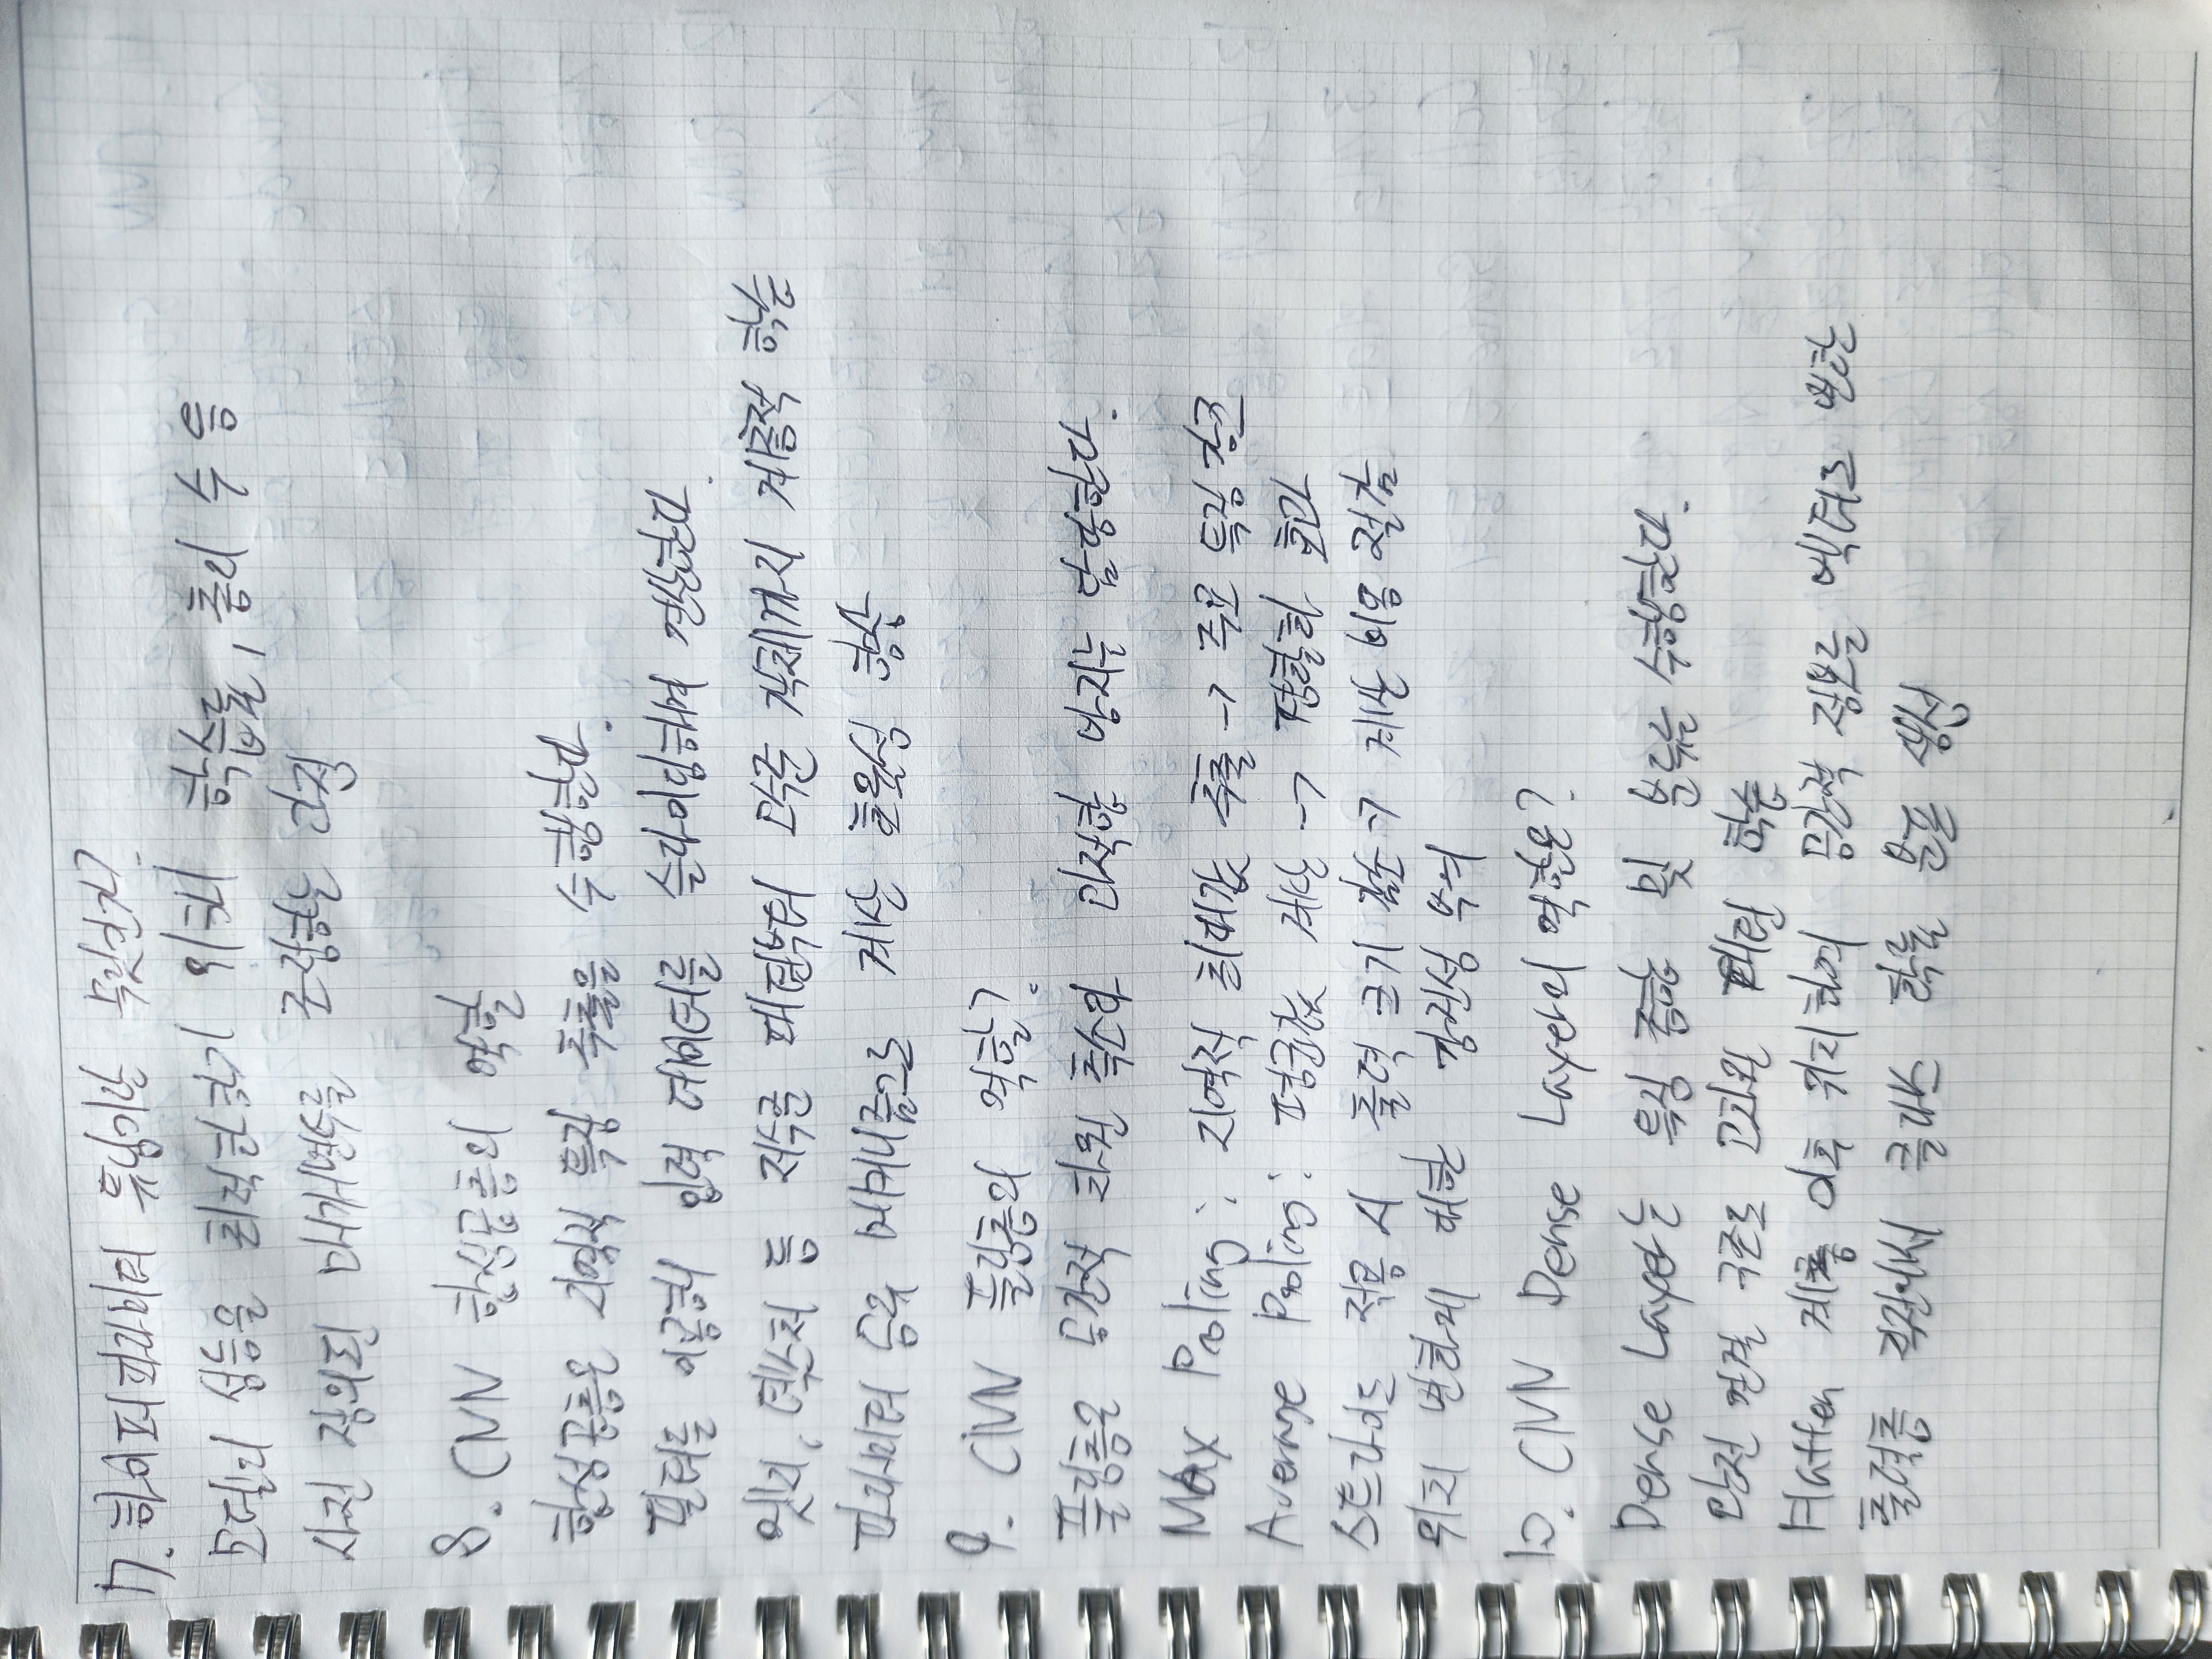 7. 하이퍼파라미터 튜닝기란 무엇인가?
모델의 성능을 최적화하기 위해 학습률, 층의 수 등
사전 정의된 매개변수를 조정하는 과정
8. CNN 합성곱층의 역할
합성곱층은 지역적 특징 추출을 수행한다.
필터를 이용해 입력 데이터를 슬라이딩하며 연산한다.
엣지, 텍스처 등 저수준 패턴부터 고수준 객체까지 계층적 학습
파라미터 공유 메커니즘으로 계산 효율성 향상
9. CNN 풀링층의 역할?
풀링층은 공간적 차원 축소와 과적합 방지는 담당한다.
Max Pooling: 지역적 최대값 추출 → 주요 특징 강조
Average Pooling: 평균값 계산 → 평활화 효과
스트라이드 적용 시 출력 크기 감소 → 계산 비용 절감
위치 변화에 대한 강건성 부여
10. CNN Dense Layer의 역할은?
Dense Layer는 특징 종합 및 분류를 수행한다.
완전 연결 구조로 고차원 패턴 학습
Flatten 계층 이후 위치하여 공간적 정보를 벡터로 변환
출력층 직전에서 클래스 확률 분포 생성